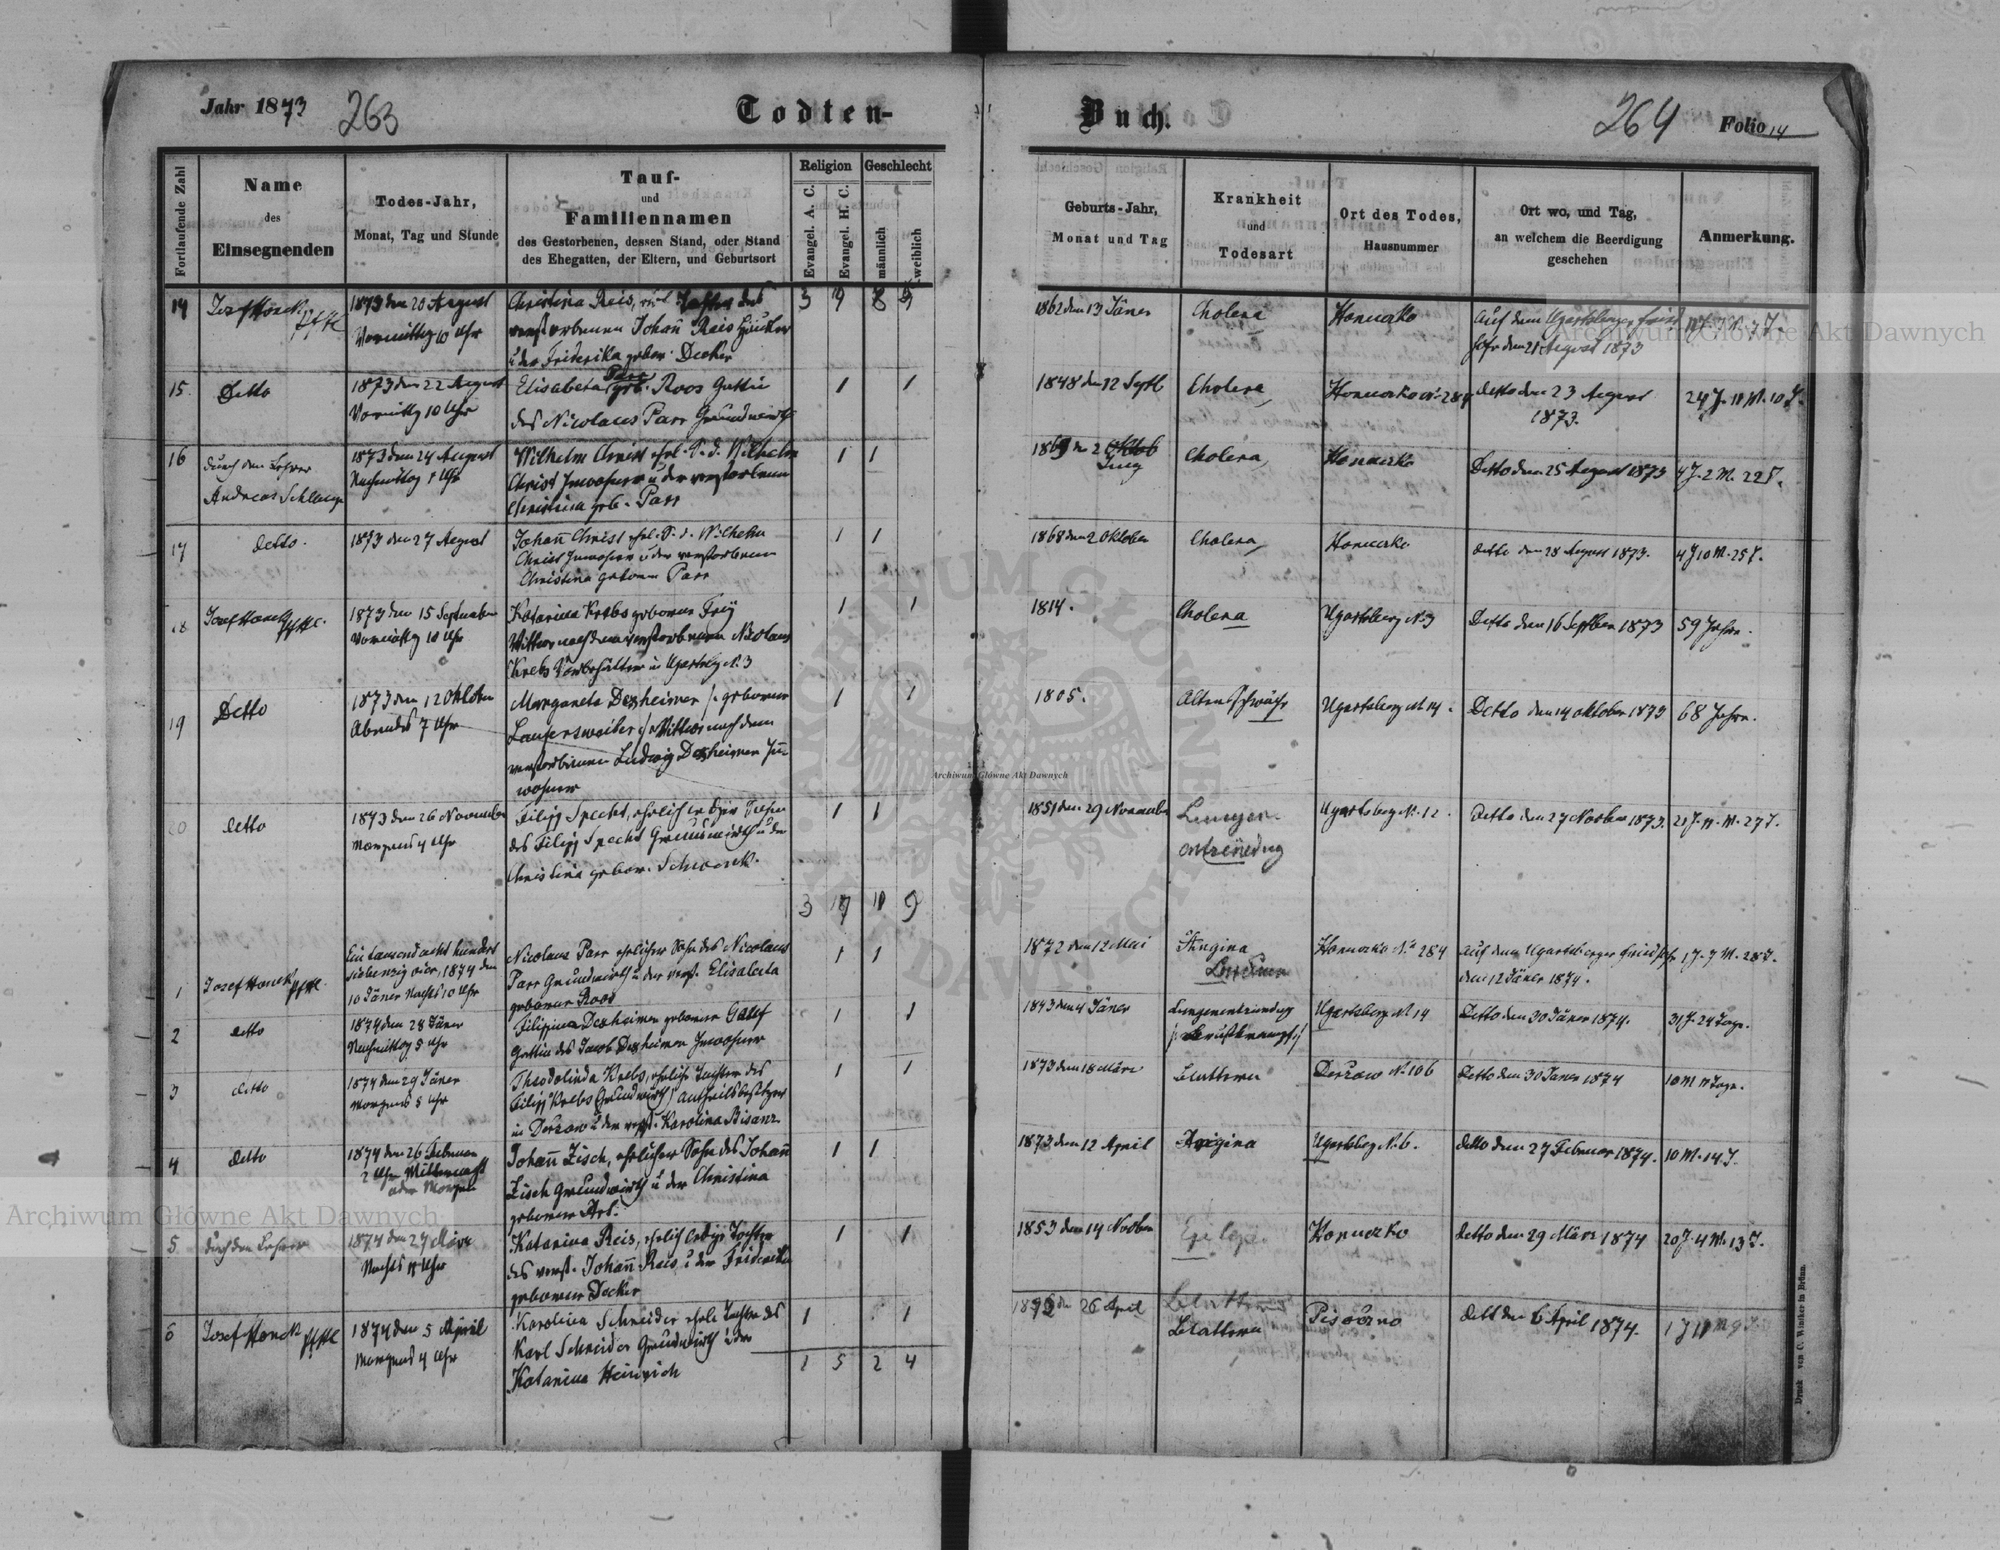 Jahr 1873
263
Todten-
Buch.
264
Folio 14
Fortlaufende Zahl
Name
des
Einsegnenden
Todes-Jahr,
Monat, Tag und Stunde
Tauf-
und
Familiennamen
des Gestorbenen, dessen Stand, oder Stand
des Ehegatten, der Eltern, und Geburtsort
Religion
Evangel. A. C.
Evangel. H. C.
Geschlecht
männlich
weiblich
Geburts-Jahr,
Monat und Tag
Krankheit
und
Todesart
Ort des Todes,
Hausnummer
Ort wo, und Tag,
an welchem die Beerdigung
geschehen
Anmerkung.
14
1873 den 20 August
Vormittg 10 Uhr
Christina Reis, Tochter des
verstorbenen Johann Reis
u der Friderika gebor. Decker
3 9
1862 den 13 Jäner
Cholera
Auf dem Ugartsberger
den 21 August 1873
15
Detto
1873 den 22 August
Vormittg 10 Uhr
Elisabeta Parr geb. Roos Gattin
des Nicolaus Parr Grundwirth
1 1
1848 den 12 Septb
Cholera
Detto den 23 August
1873.
24 J. 11 M. 10 T.
16
durch den Lehrer
Andreas
1873 den 24 August
Nachmittag 1 Uhr
Wilhelm Christ ehel. S. d. Wilhelm
Christ Inwohner u der verstorbenen
Christina geb. Parr
1 1
Cholera
Detto den 25 August 1873
4 J. 2 M. 22 T.
17
detto.
1873 den 27 August
Johann Christ ehel. S. d. Wilhelm
Christ Inwohner u der verstorbenen
Christina geboren Parr
1 1
1868 den 2 Oktober
Cholera
detto den 28 August 1873.
4 J 10 M. 25 T.
18
1873 den 15 September
Vormittg 10 Uhr
Katarina Krebs geborene Frey
Wittwe nach dem verstorbenen Nicolaus
Krebs in Ugartsbg N. 3
1 1
1814.
Cholera
Ugartsberg N. 3
Detto den 16 Septber 1873
59 Jahr.
19
Detto
1873 den 12 Oktober
Abends 7 Uhr
Margareta Dexheimer /: geborene
Lauersweiler :/ Wittwe nach dem
verstorbenen Ludwig Dexheimer In-
wohner
1 1
1805.
Altersschwäche
Ugartsberg N. 14.
Detto den 14 Oktober 1873
68 Jahr.
20
detto
1873 den 26 November
Morgens 4 Uhr
Filipp Specht, ehelich lediger Sohn
des Filipp Specht Grundwirth u der
Christina gebor. Schwenk.
1 1
1851 den 29 November
Lungen-
Ugartsberg N. 12.
Detto den 27 Novber 1873.
21 J. 11 M. 27 T.
3 17 11 9
1
Josef Honek
Ein tausend acht hundert
siebenzig vier, 1874 den
10 Jäner Nachts 10 Uhr
Nicolaus Parr ehelicher Sohn des Nicolaus
Parr Grundwirth u der verst. Elisabeta
geborene Roos
1 1
1872 den 12 Mai
Angina
Auf dem Ugartsberger Friedhof
den 12 Jäner 1874.
1 J. 7 M. 28 T.
2
detto
1874 den 28 Jäner
Nachmittag 5 Uhr
Filipina Dexheimer geborene
Gattin des Jacob Dexheimer Inwohner
1 1
1843 den 4 Jäner
Lungenentzündung
Ugartsberg N. 14
Detto den 30 Jäner 1874.
31 J. 24 Tage.
3
detto
1874 den 29 Jäner
Morgens 5 Uhr
Theodolinda Krebs, eheliche Tochter des
Filipp Krebs Grundwirth / Antheilsbesitzer
in Derzow u der verst. Karolina Bisanz
1 1
1873 den 18 März
Blattern
Derzow N. 106
Detto den 30 Jäner 1874
10 M 11 Tage.
4
detto
1874 den 26 Februar
2 Uhr Mitternacht
oder Morgen
Johann Zisch, ehelicher Sohn des Johann
Zisch Grundwirth u der Christina
geborene
1 1
1873 den 12 April
Angina
Ugartsberg N. 6.
detto den 27 Februar 1874.
10 M. 14 T.
5
durch den Lehrer
1874 den 27 März
Nachts 11 Uhr
Katarina Reis, ehelich ledige Tochter
des verst. Johann Reis u der Friderika
geborene Decker
1 1
1853 den 14 Novber
detto den 29 März 1874
20 J. 4 M. 13 T.
6
Josef Honek
1874 den 5 April
Morgens 4 Uhr
Karolina Schneider ehel Tochter des
Karl Schneider Grundwirth u der
Katarina Heinrich
1 1
26 April
Blattern
Pisoczno
dett den 6 April 1874.
1 5 2 4
Druck von C. Winiker in Brünn.
Archiwum Główne Akt Dawnych
Archiwum Główne Akt Dawnych
Archiwum Główne Akt Dawnych